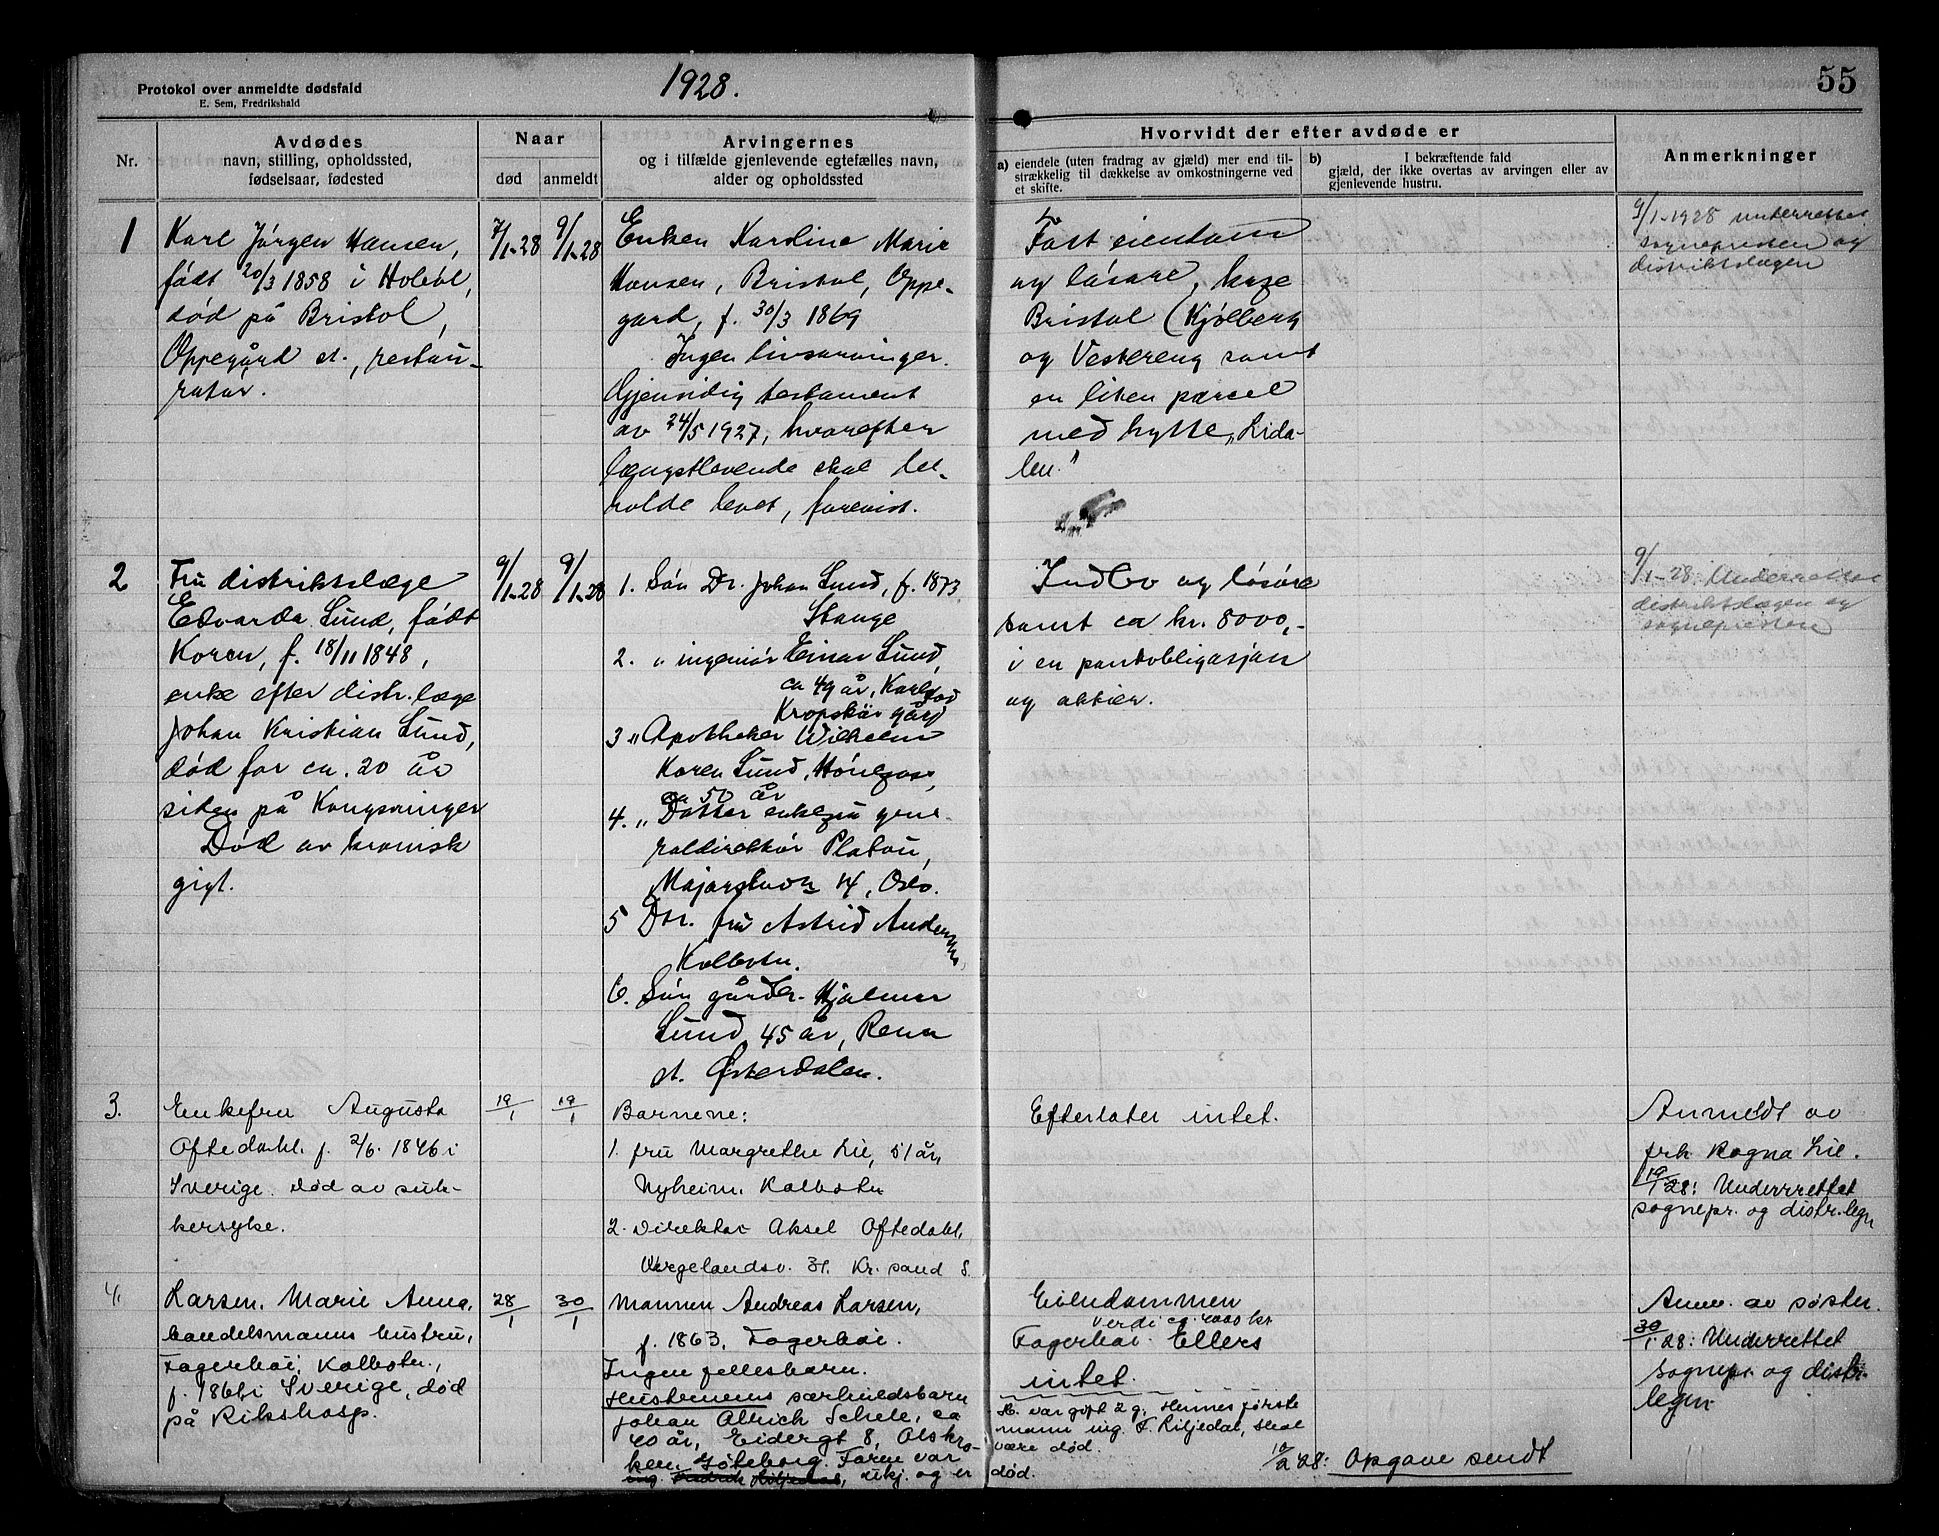 Protokol over anmeldte dødsfald
E. Sem, Fredrikshald
1928.
55
Nr.
Avdødes
navn, stilling, opholdssted,
fødselsaar, fødested
Naar
død
anmeldt
Arvingernes
og i tilfælde gjenlevende egtefælles navn,
alder og opholdssted
Hvorvidt der efter avdøde er
a) eiendele (uten fradrag av gjæld) mer end til-
strækkelig til dækkelse av omkostningerne ved
et skifte.
b) I bekræftende fald
gjæld, der ikke overtas av arvingen eller av
gjenlevende hustru.
Anmerkninger
1
Karl Jørgen Hansen,
født 20/3 1858 i Holebl,
død på Bristol,
Oppegård st., restau-
ratør.
7/1-28
9/1-28
Enken Karoline Marie
Hansen, Bristol, Oppe-
gard, f. 30/3 1869
Ingen livsarvinger.
Gjensidig testament
av 24/5 1927, hvorefter
længstlevende skal be-
holde boet, forevist.
Fast eiendom
og løsøre,
Bristol (Kjølberg
og Vestereng samt
en liten parsel
med hytte, "Lida-
len."
9/1-1928 underrettet
sognepresten og
distriktslægen
2
Fru distriktslæge
Edvarda Lund, født
Koren, f. 18/11 1848,
enke efter distr.læge
Johan Kristian Lund,
død for ca. 20 år
siden på Kongsvinger
Død av kronisk
gigt.
9/1-28
9/1-28
1. Søn Dr. Johan Lund, f. 1873
Stange
2. " ingeniør Einar Lund,
ca 49 år, Karlstad
Kropskär gård
3 " Apotheker Wilhelm
Koren Lund, Hønefoss,
ca 50 år
4. " Datter enkefru gene-
raldirektør Platou,
Majorstuvn 14, Oslo.
5 Dtr. fru Astrid Andersen
Kolbotn.
6. Søn gårdbr. Hjalmar
Lund 45 år, Rena
st. Østerdalen.
Indbo og løsøre
samt ca kr. 8000,-
i en pantobligasjon
og aktier.
9/1-28. Underrettet
distriktslægen og
sognepresten
3.
Enkefru Augusta
Oftedahl. f. 2/6. 1846 i
Sverige. Død av suk-
kersyke.
19/1
19/1
Barnene:
1. fru Margrethe Lie, 51 år
Nyheim. Kolbotn
2. Direktør Aksel Oftedahl.
Vergelandsv. 31. Kr.sand S.
Efterlater intet.
Anmeldt av
frk Ragna Lie.
19/1 28: Underrettet
sognepr. og distr.legn
4.
Larsen, Marie Anna,
handelsmanns hustru,
Fagerhøi, Kolbotn.,
f. 1861 i Sverige, død
på Rikshosp.
28/1
30/1
Mannen Andreas Larsen,
f. 1863, Fagerhøi.
Ingen fellesbarn.
Hustruens særkuldsbarn
Johan Alrich Schele, ca
40 år, Eidergt 8, Olskro-
ken. Göteborg. Faren var
ing Fredrik Liljedal, ukj. og er
død.
Eiendommen
verdi ca. 4000 kr
Fagerhøi. Ellers
intet.
H. var gift 2 g. Hennes første
mann ing. F. Liljedal, skal
være død.
10/2 28: Opgave sendt
Anm. av søster.
30/1 28: Underrettet
sognepr. og distr.
legn